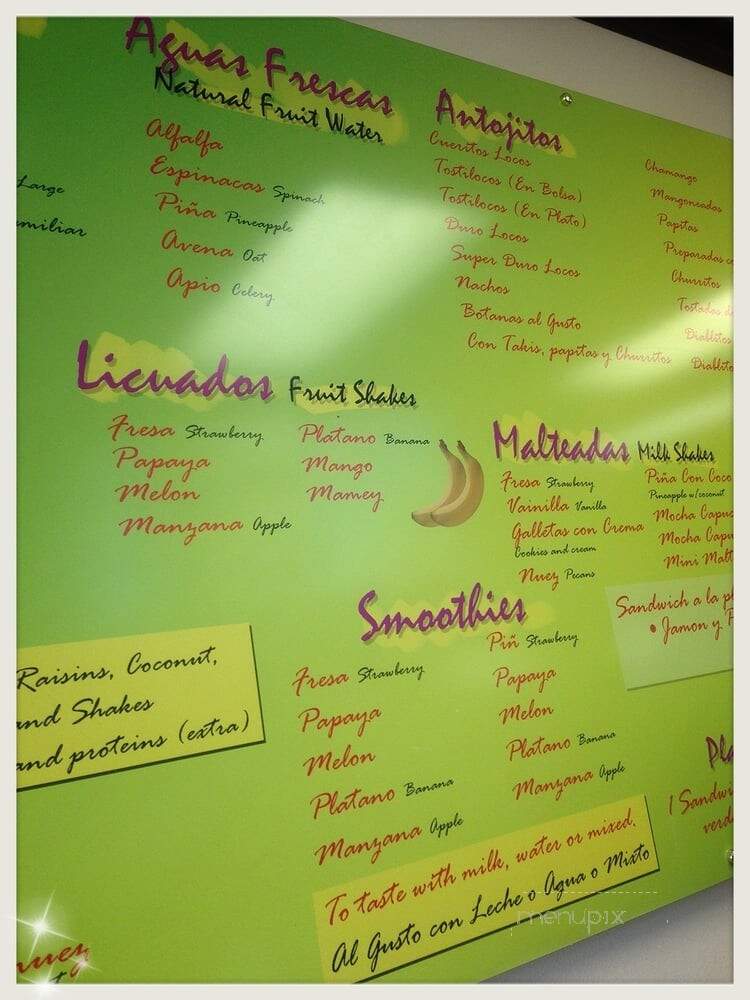 Aguas Frescas
Natural Fruit Water
Alfalfa
Espinacas Spinach
Piña Pineapple
Avena Oat
Apio Celery
Large
Antojitos
Cueritos Locos
Tostilocos (En Bolsa)
Tostilocos (En Plato)
Duro Locos
Super Duro Locos
Nachos
Botanas al Gusto
Con Takis, papitas y Churritos
Chamango
Mangoneadas
Papitas
Preparadas
Churritos
Tostadas
Diablitos
Licuados Fruit Shakes
Fresa Strawberry
Papaya
Melon
Manzana Apple
Platano Banana
Mango
Mamey
Malteadas Milk Shakes
Fresa Strawberry
Vainilla Vanilla
Galletas con Crema
Cookies and cream
Nuez Pecans
Piña Con Coco
Pineapple w/coconut
Mocha
Mocha
Mini
Sandwich a la
• Jamon y
Smoothies
Fresa Strawberry
Papaya
Melon
Platano Banana
Manzana Apple
Piñ Strawberry
Papaya
Melon
Platano Banana
Manzana Apple
Raisins, Coconut,
and Shakes
and proteins (extra)
To taste with milk, water or mixed.
Al Gusto con Leche o Agua o Mixto
1
nuez
menupix